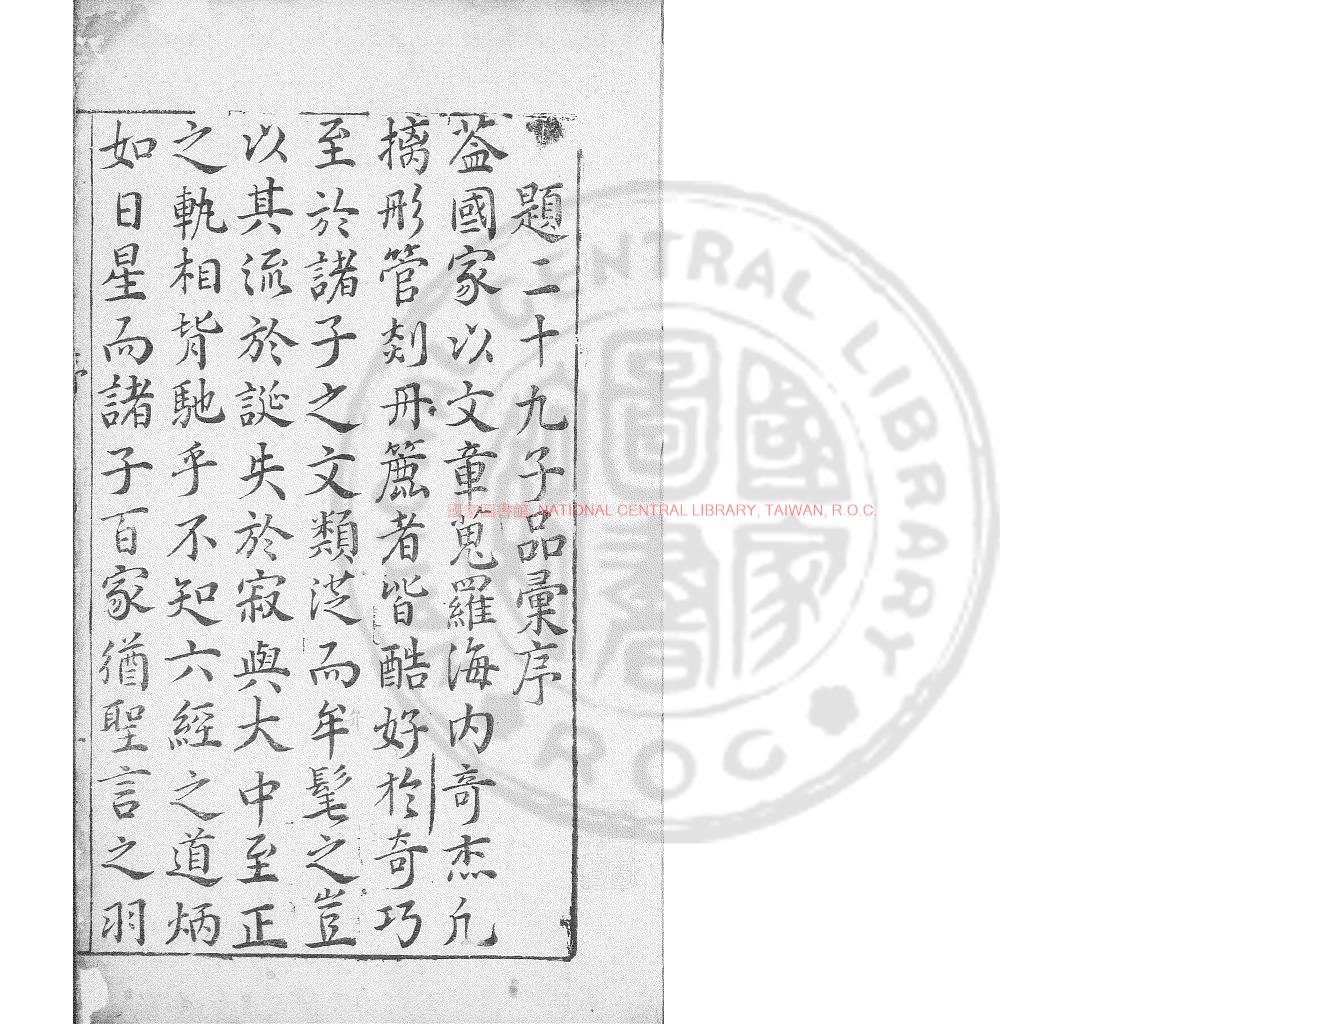 題二十九子品彙序
葢國家以文章蒐羅海内奇杰凢
摛彤管剡丹簏者皆酷好於奇巧
至於諸子之文類涖而牟髦之豈
以其流於誕失於寂與大中至正
之軌相背馳乎不知六經之道炳
如日星而諸子百家猶聖言之羽
國家圖書館 NATIONAL CENTRAL LIBRARY, TAIWAN, R.O.C
CENTRAL LIBRARY
ROC
國家圖書